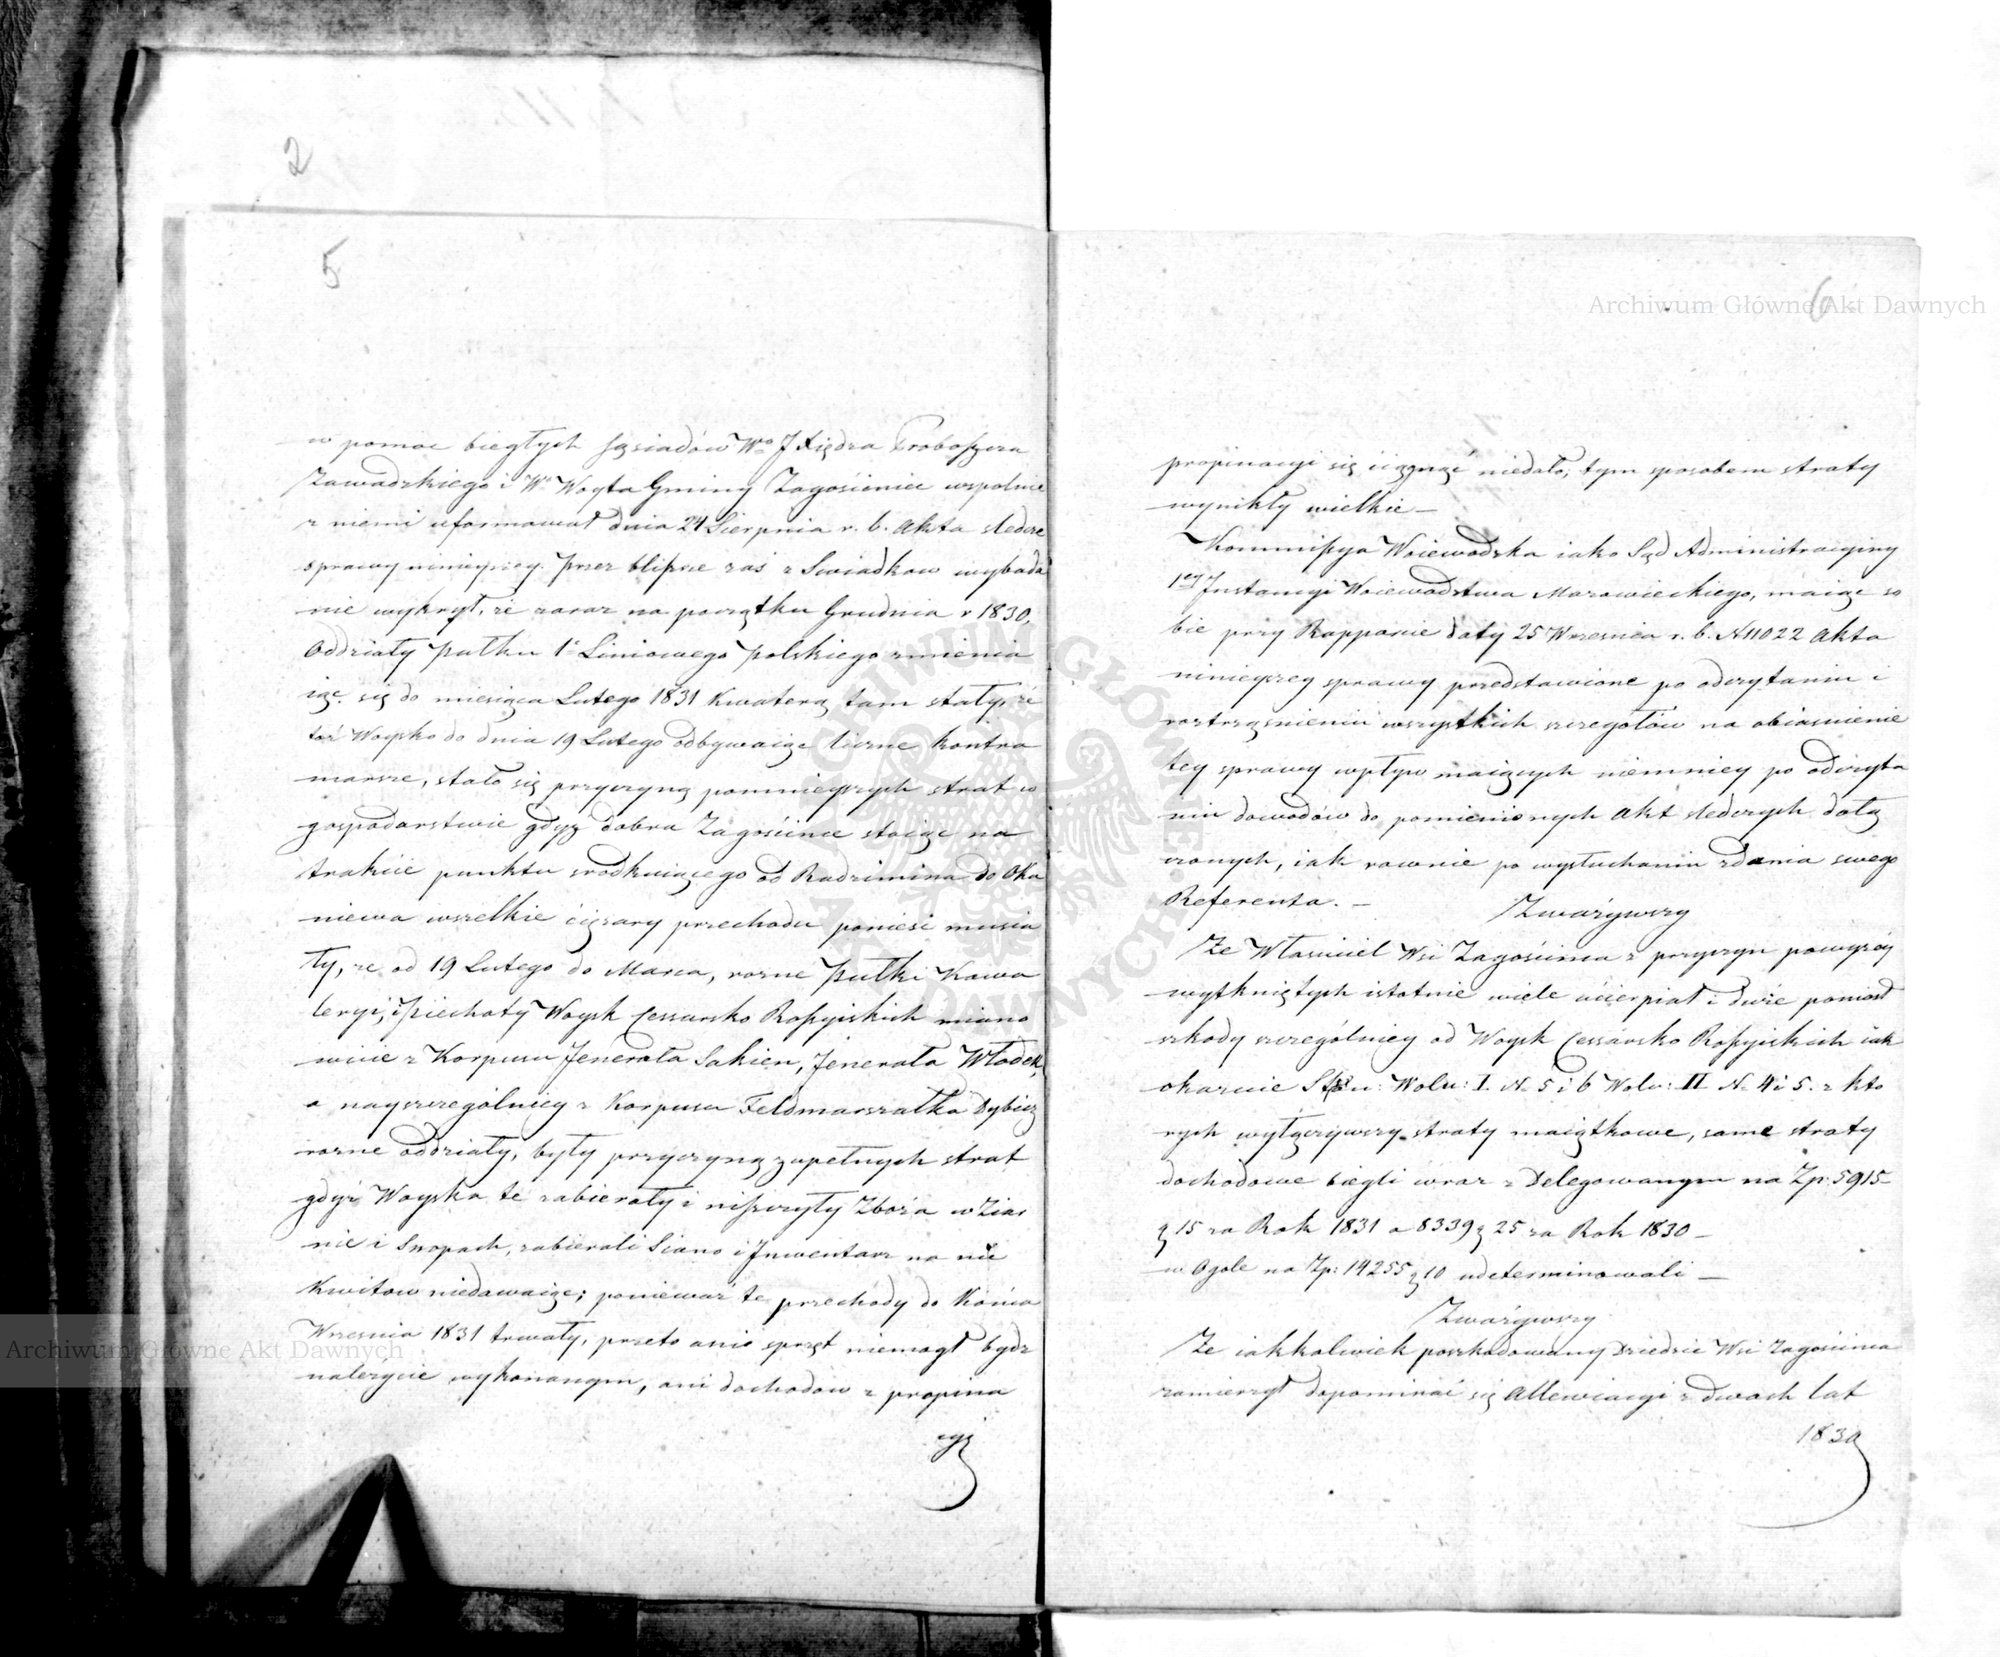 2
5
w pomoc biegłych sąsiadów Wo J Xiędza Proboszcza
Zawadzkiego i Wo Woyta Gminy Zagościniec wspolnie
z niemi uformował dnia 24 Sierpnia r. b. akta sledcze
sprawy ninieyszey. przez bliższe zaś z Swiadkow wybada
nie wykrył, że zaraz na początku Grudnia r 1830,
Oddziały pułku 1o Liniowego polskiego zmienia
iąc się do miesiąca Lutego 1831 kwaterą tam stały, że
toż Woysko do dnia 19 Lutego odbywaiąc liczne kontra
marsze, stało się przyczyną pomnieyszych strat w
gospodarstwie gdyż dobra Zagoścince stoiąc na
trakcie punktu srodkuiącego od Radzimina do Oku
niewa wszelkie ciężary przechodu ponieść musia
ły, że od 19 Lutego do Marca, rozne pułki Kawa
leryi, i piechoty Woysk Cessarsko Rossyiskich miano
wicie z Korpusu Jenerała Saken, Jenerała Włodek,
a nayszczególniey z Korpusu Feldmarszałka Dybicz
rozne oddziały, były przyczyną zupełnych strat
gdyż Woyska te zabierały i niszczyły Zboża w Ziar
nie i Snopach, zabierali Siano i Inwentarz na nic
Kwitow niedawaiąc; ponieważ te przechody do Końca
Wrzesnia 1831 trwały, przeto ani sprzęt niemogł bydz
należycie wykonanym, ani dochodow z propina
cyi
Archiwum Główne Akt Dawnych
6
propinacyi się ciągnąć niedało, tym sposobem straty
wynikły wielkie —
Kommissya Woiewodzka iako Sąd Administracyiny
1ey Instancyi Woiewodztwa Mazowieckiego, maiąc so
bie przy Rapporcie daty 25 Wrzesnia r. b. N 11022 akta
ninieyszey sprawy przedstawione po odczytaniu i
roztrząsnieniu wszystkich szczegołów na obiasnienie
tey sprawy wpływ maiących niemniey po odczyta
niu dowodów do pomienionych akt sledczych dołą
czonych, iak rownie po wysłuchaniu zdania swego
Referenta. —
Zważywszy
Ze Własciciel Wsi Zagościnca z przyczyn powyżey
wytkniętych istotnie wiele ucierpiał i duże poniosł
szkody szczególniey od Woysk Cessarsko Rossyiskich iak
okazuie Wolu: I. No 5 i 6 Wolu: II No 4 i 5. z kto
rych wyłączywszy straty maiątkowe, same straty
dochodowe biegli wraz z Delegowanym na Zp. 5915
g 15 za Rok 1831 a 8339 g 25 za Rok 1830 —
w Ogole na Zp: 14255 g 10 udeterminowali —
Zważywszy
Ze iakkolwiek poszkodowany Dziedzic Wsi Zagościnca
zamierzył dopominać się Allewiacyi z dwoch lat
1830
Archiwum Główne Akt Dawnych
ARCHIWUM GŁÓWNE AKT DAWNYCH